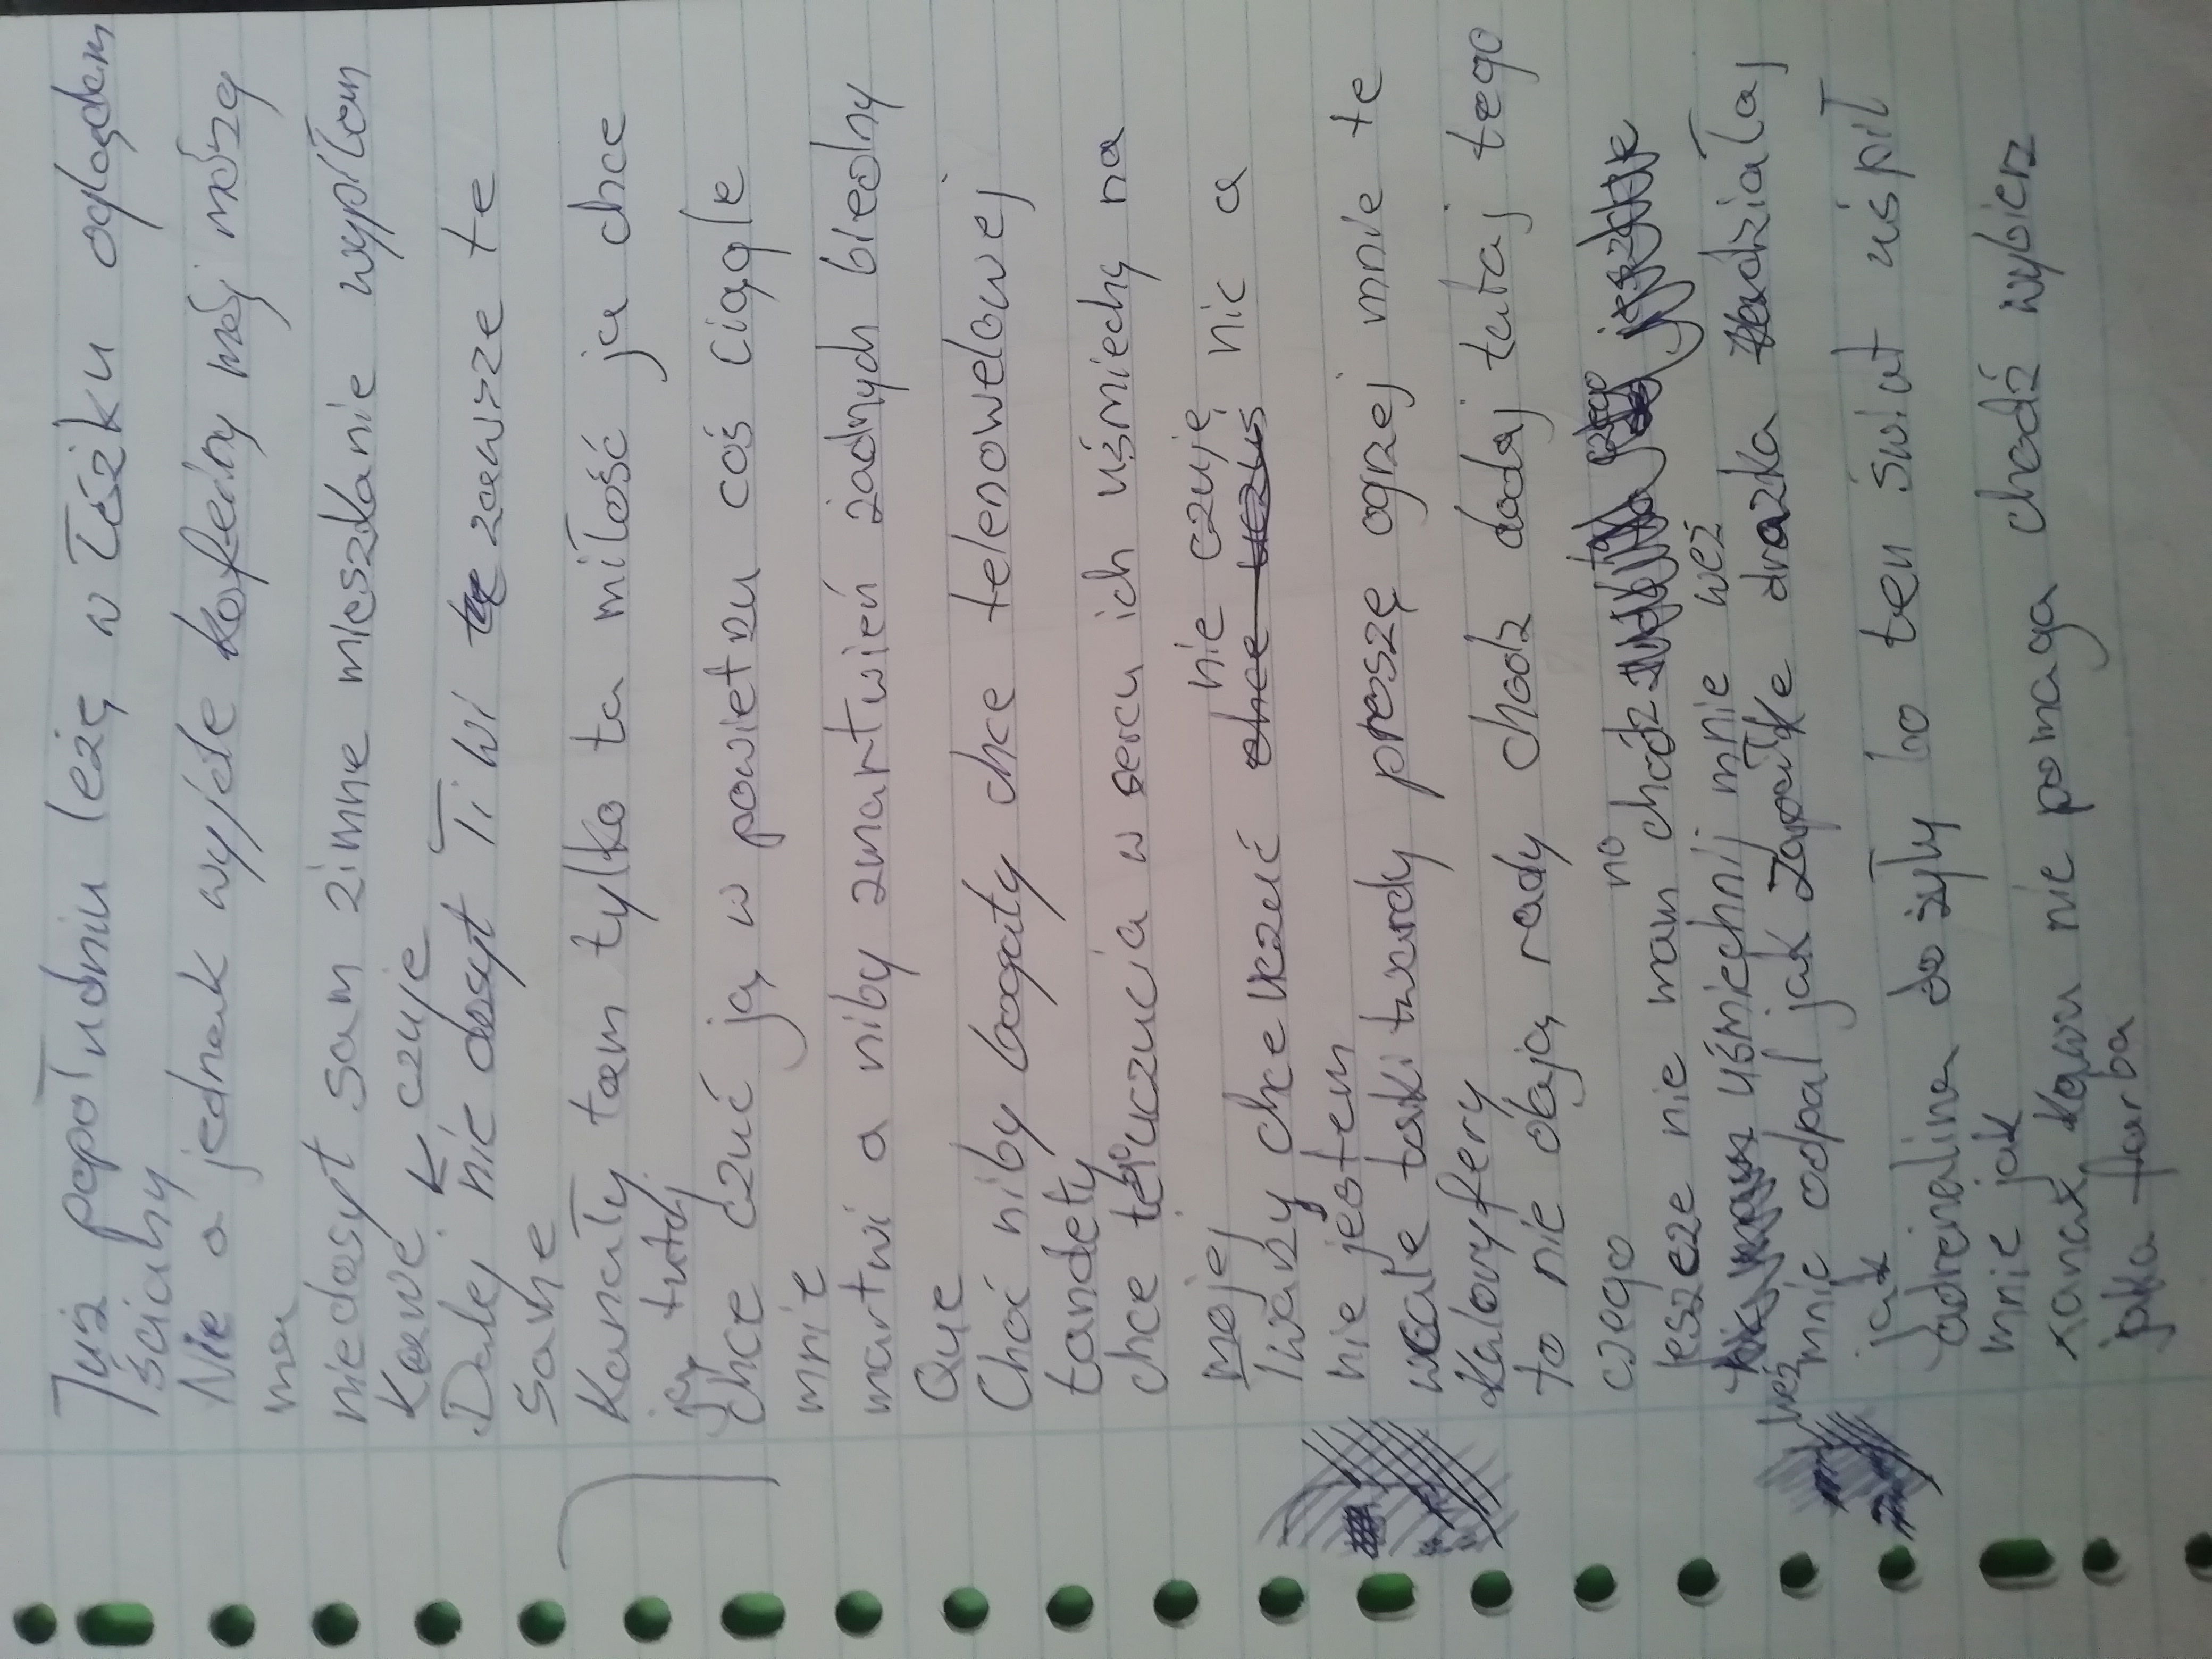 Już popołudniu leżę w łóżku oglądam
ściany
Nie a jednak wyjde kofeiny mój mózg
ma
niedosyt sam zimne mieszkanie wypiłem
Kawe k czuje
Dalej nic dosyt Ti Wi zawsze te
same
Kanały tam tylko ta miłość ja chce
ją tutaj
Chce czuć ją w powietrzu coś ciągle
mnie
martwi a niby zmartwień żadnych biedny
Que
Choć niby bogaty chce telenowelowej
tandety
chce te uczucia w sercu ich uśmiechy na
mojej nie czuje
Twarzy chce uczuć nic a
nie jestem
wcale taki twardy proszę ogrzej mnie te
Kaloryfery
to nie dają rady chodz dodaj tutaj tego
czego no
jeszcze nie mam chodz
uśmiechnij mnie weź
weź mnie odpal jak Zapałke draska zadziałaj
jak
adrenalina do żyły bo ten świat uśpił
mnie jak
xanax kawa nie pomaga chodź wybierz
jaka farba